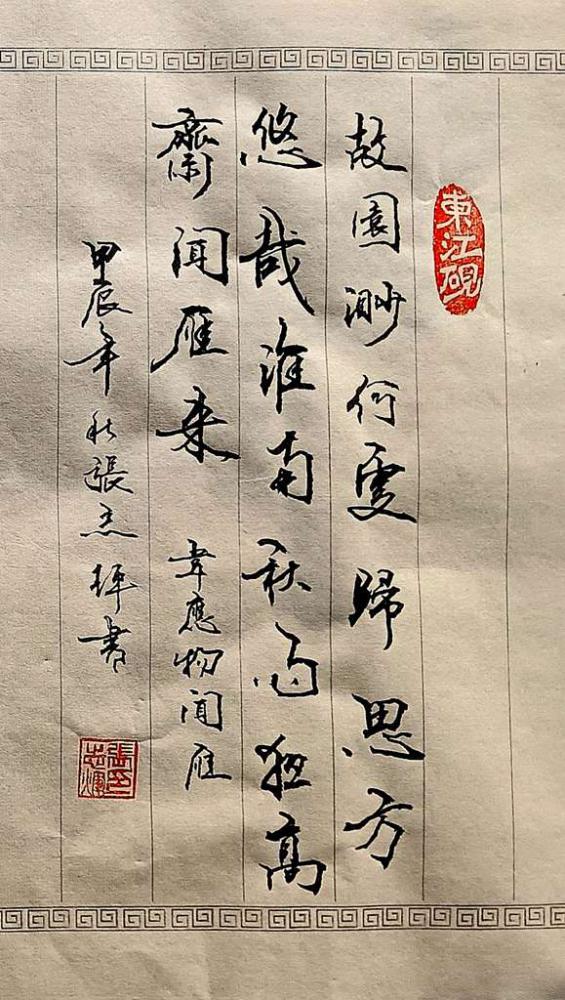 東江硯
故園渺何處歸思方
悠哉淮南秋雨夜高
齋聞雁来 韋應物聞雁
甲辰年秋張志煇書
張印志煇